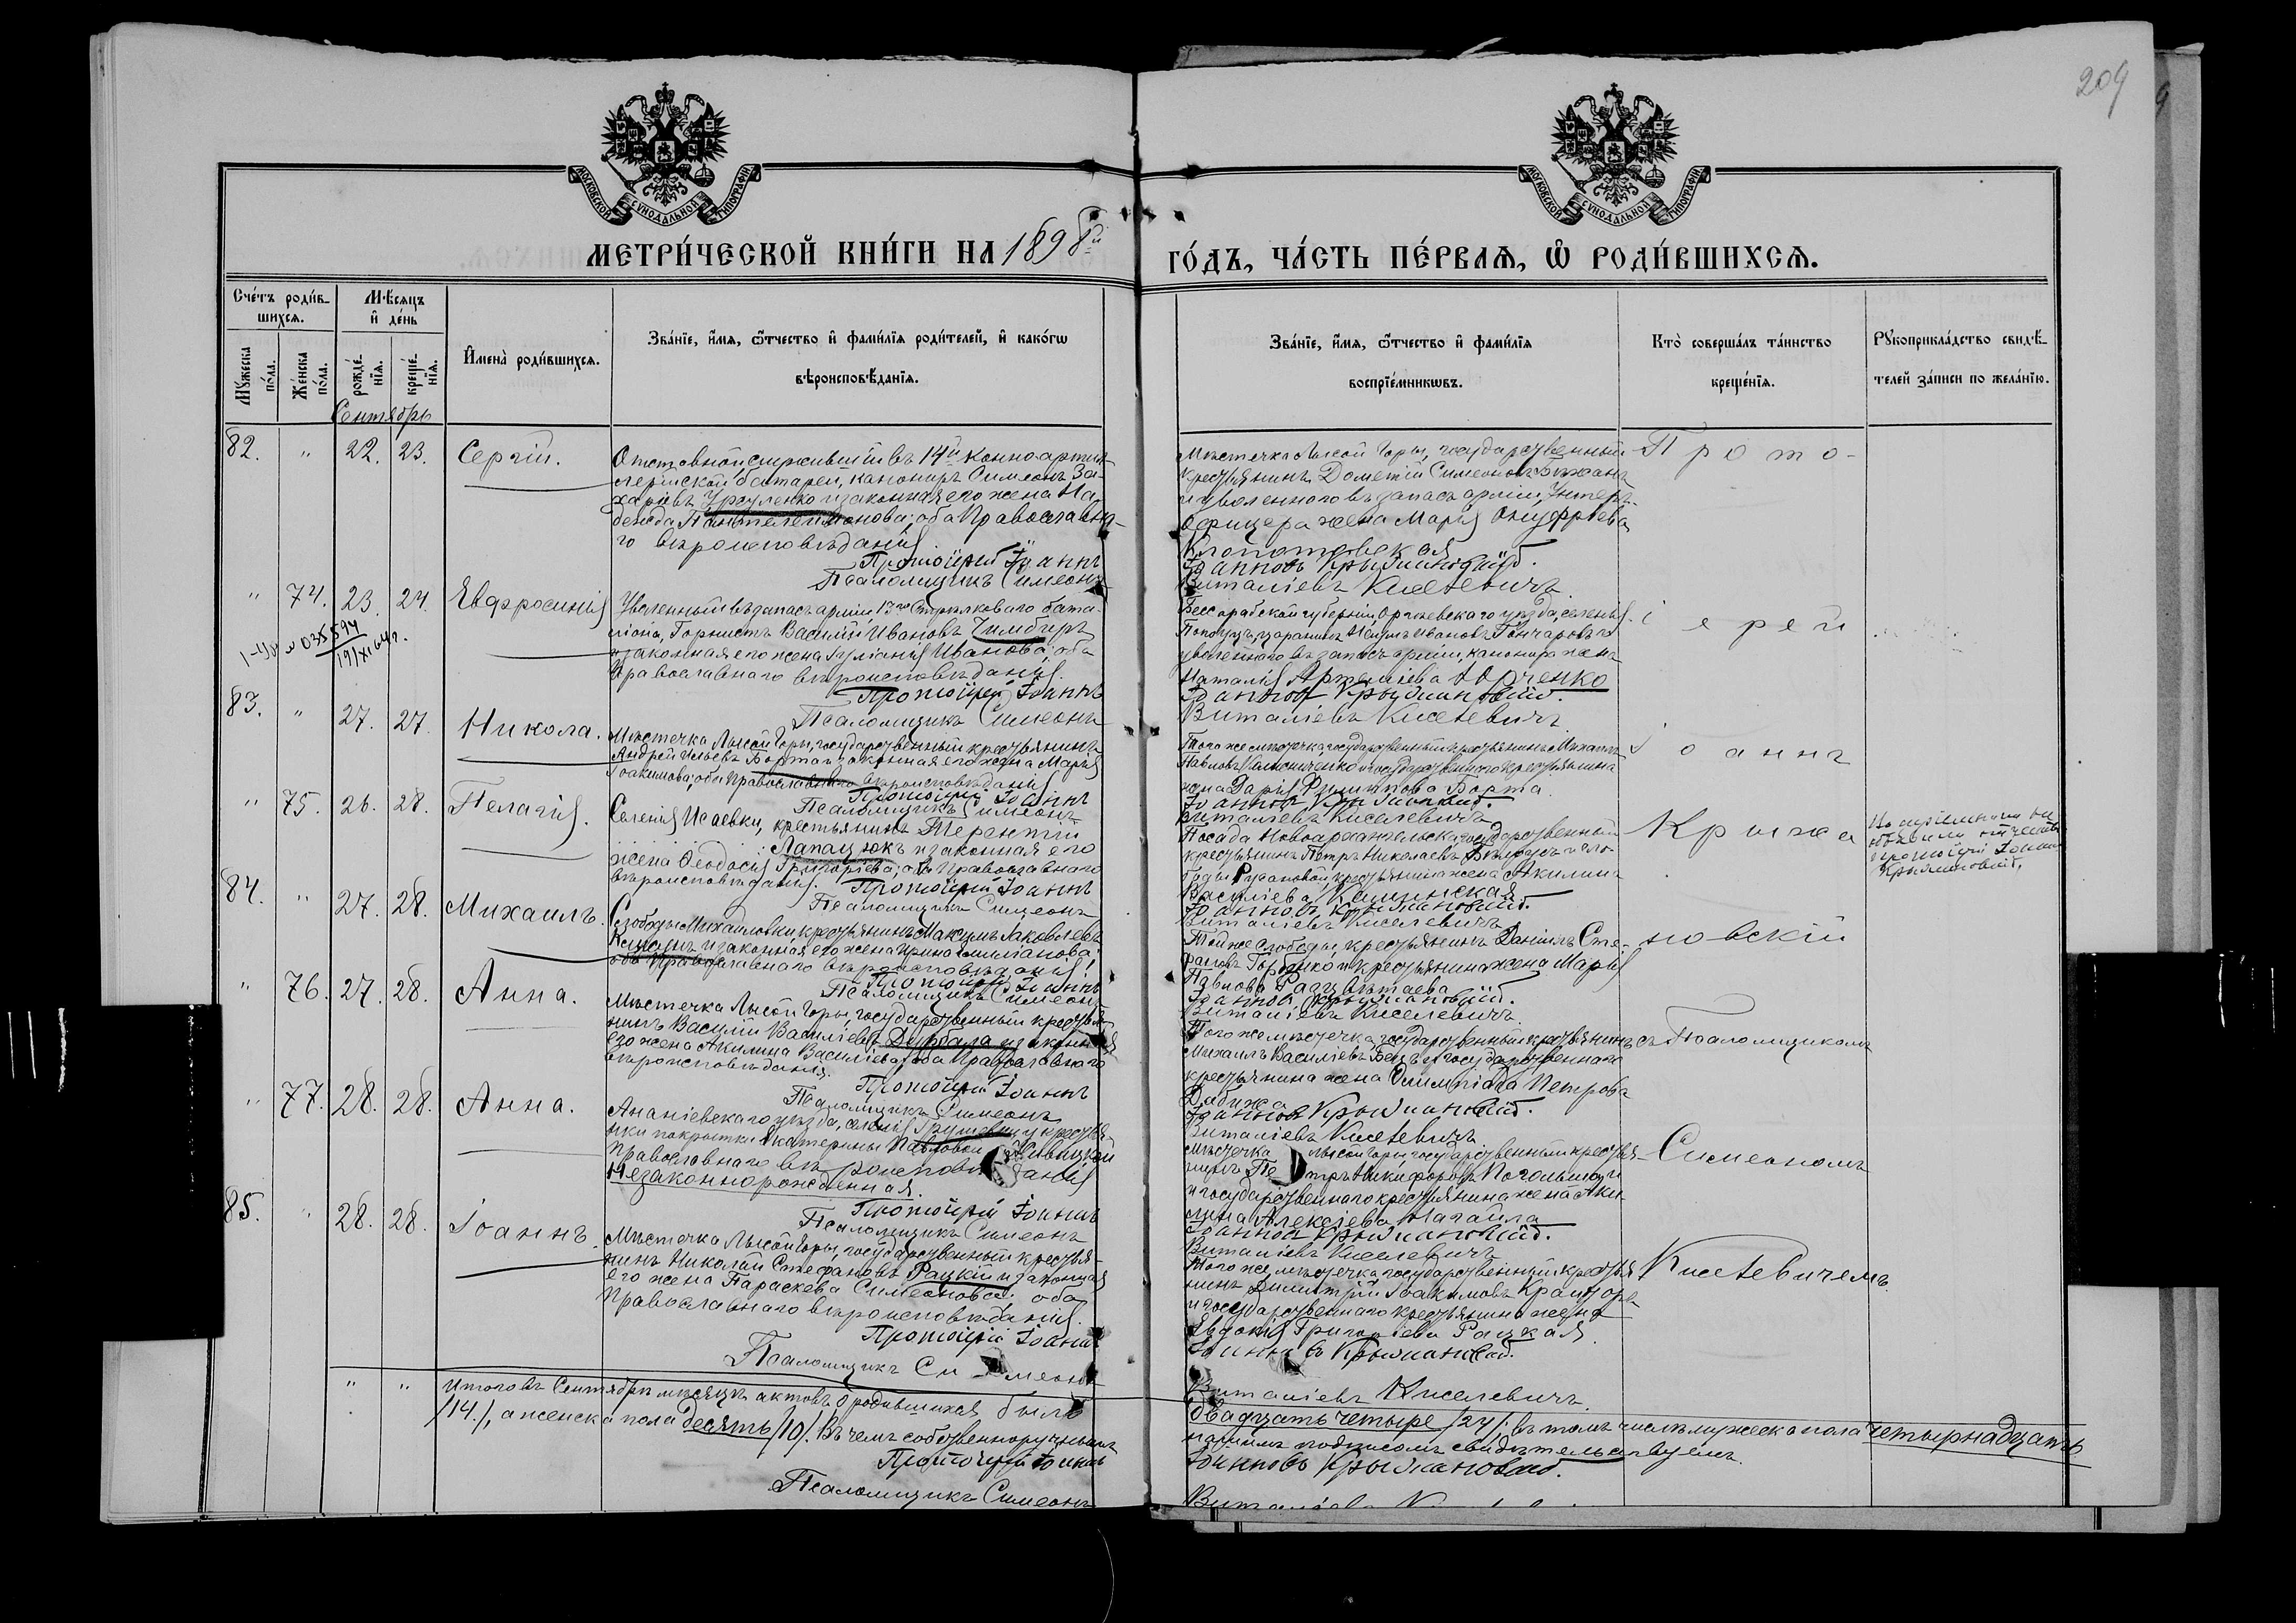 209
МОСКОВСКОЙ СУНОДАЛЬНОЙ ТИПОГРАФІИ
МОСКОВСКОЙ СУНОДАЛЬНОЙ ТИПОГРАФІИ
МЕТРИ́ЧЕСКОЙ КНИ́ГИ НА 1898й
ГО́ДЪ, ЧА́СТЬ ПЕ́РВАѦ, Ѡ РОДИ́ВШИХСѦ.
Сче́тъ роди́в-
шихсѧ.
Мѣсяцъ
и де́нь
Мꙋжеска
по́ла.
Же́нска
по́ла.
рожде́-
нїѧ.
креще́-
нїѧ.
И҆мена̀ роди́вшихсѧ.
Зва́нїе, и҆́мѧ, ѻ҆́тчество и҆ фами́лїѧ роди́телей, и҆ како́гѡ
вѣроисповѣ́данїѧ.
Зва́нїе, и҆́мѧ, ѻ҆́тчество и҆ фами́лїѧ
воспрїе́мникѡвъ.
Кто̀ соверша́лъ та́инство
креще́нїѧ.
Рꙋкоприкла́дство свидѣ́-
телей за́писи по жела́нїю.
Сентябрь
82. " 22. 23. Сергій.
Отставной служившій въ 14й Конно артил-
лерійской батареи, канониръ Симеонъ За-
харіевъ Урсуленко и законная его жена На-
дежда Пантелеимонова; оба Православна-
го вѣроисповѣданія.
Протоіерей Іоаннъ
Псаломщикъ Симеонъ
Мѣстечка Лысой Горы, государственный
крестьянинъ Дометій Симеоновъ
и уволеннаго въ запасъ арміи, Унтеръ-
Офицера жена Марія Онуфріева
Клопотовская
Іанновъ Крыжановскій.
Виталіевъ Киселевичъ.
Прото-
" 74. 23. 24. Евфросинія
1-ЧИ № 035594
19/XI 64г.
Уволенный въ запасъ арміи 13го Стрѣлковаго бата-
ліона, Горнистъ Василій Ивановъ Чимбиръ
и законная его жена Іуліанія Иванова; оба
Православнаго вѣроисповѣданія.
Протоіерей Іоаннъ
Псаломщикъ Симеонъ
Бессарабской губерніи, Оргѣевскаго уѣзда, селенія
царанинъ Наумъ Ивановъ Гончаровъ и
уволеннаго въ запасъ арміи, канонира жена
Наталія Артеміева Юрченко
Іанновъ Крыжановскій.
Виталіевъ Киселевичъ
іерей
83. " 27. 27 Никола.
Мѣстечка Лысой Горы, государственный крестьянинъ
Андрей Ильевъ Борта и законная его жена Марія
Іоакимова; оба Православнаго вѣроисповѣданія
Протоіерей Іоаннъ
Псаломщикъ Симеонъ
Того же мѣстечка государственный крестьянинъ Михаилъ
Павловъ и государственнаго крестьянина
жена Дарія Филиппова Борта.
Іанновъ Крыжановскій.
Виталіевъ Киселевичъ
Іоаннъ
" 75. 26. 28. Пелагія.
Селенія Исаевки, крестьянинъ Терентій
Лапацюкъ и законная его
жена Феодосія Григоріева; оба Православнаго
вѣроисповѣданія.
Протоіерей Іоаннъ
Псаломщикъ Симеонъ
Посада Новоархангельска государственный
крестьянинъ Петръ Николаевъ и сло-
боды крестьянина жена Акилина
Василіева
Іанновъ Крыжановскій.
Виталіевъ Киселевичъ
Крыжа
Іоаннъ
Крыжановскій.
84. " 27. 28. Михаилъ.
Слободы Михайловки, крестьянинъ Максимъ Іаковлевъ
и законная его жена Ирина Емиліанова;
оба Православнаго вѣроисповѣданія.
Протоіерей Іоаннъ
Псаломщикъ Симеонъ
Той же слободы, крестьянинъ Даніилъ Сте-
фановъ Горбенко и крестьянина жена Марія
Павлова
Іанновъ Крыжановскій.
Виталіевъ Киселевичъ
новскій
" 76. 27. 28. Анна.
Мѣстечка Лысой Горы, государственный крестья-
нинъ Василій Василіевъ Дурбала и законная
его жена Акилина Василіева; оба Православнаго
вѣроисповѣданія.
Протоіерей Іоаннъ
Псаломщикъ Симеонъ
Того же мѣстечка, государственный крестьянинъ
Михаилъ Василіевъ и государственнаго
крестьянина жена Олимпіада Петрова
Дабижа
Іанновъ Крыжановскій.
Виталіевъ Киселевичъ
съ Псаломщикомъ
" 77. 28. 28. Анна.
Ананіевскаго уѣзда, селенія Грушевки, у крестья-
нки покрытки Екатерины Павловой
Православнаго вѣроисповѣданія
Незаконнорожденная.
Протоіерей Іоаннъ
Псаломщикъ Симеонъ
Мѣстечка Лысой Горы, государственный крестья-
нинъ Петръ Никифоровъ и
государственнаго крестьянина жена Аки-
лина Алексіева
Іанновъ Крыжановскій.
Виталіевъ Киселевичъ
Симеономъ
85. " 28. 28. Іоаннъ.
Мѣстечка Лысой Горы, государственный крестья-
нинъ Николай Стефановъ Рацкій и законная
его жена Параскева Симеонова; оба
Православнаго вѣроисповѣданія.
Протоіерей Іоаннъ
Псаломщикъ Симеонъ
Того же мѣстечка государственный крестья-
нинъ Димитрій Іоакимовъ
и государственнаго крестьянина жена
Евдокія Григоріева Рацкая.
Іанновъ Крыжановскій.
Виталіевъ Киселевичъ.
Киселевичемъ.
" " Итого въ Сентябрѣ мѣсяцѣ актовъ о родившихся было
двадцать четыре /24/; въ томъ числѣ мужеска пола четырнадцать
/14/, а женска пола десять /10/. Въ чемъ собственноручнымъ
нашимъ подписомъ свидѣтельствуемъ.
Протоіерей Іоаннъ
Іанновъ Крыжановскій.
Псаломщикъ Симеонъ